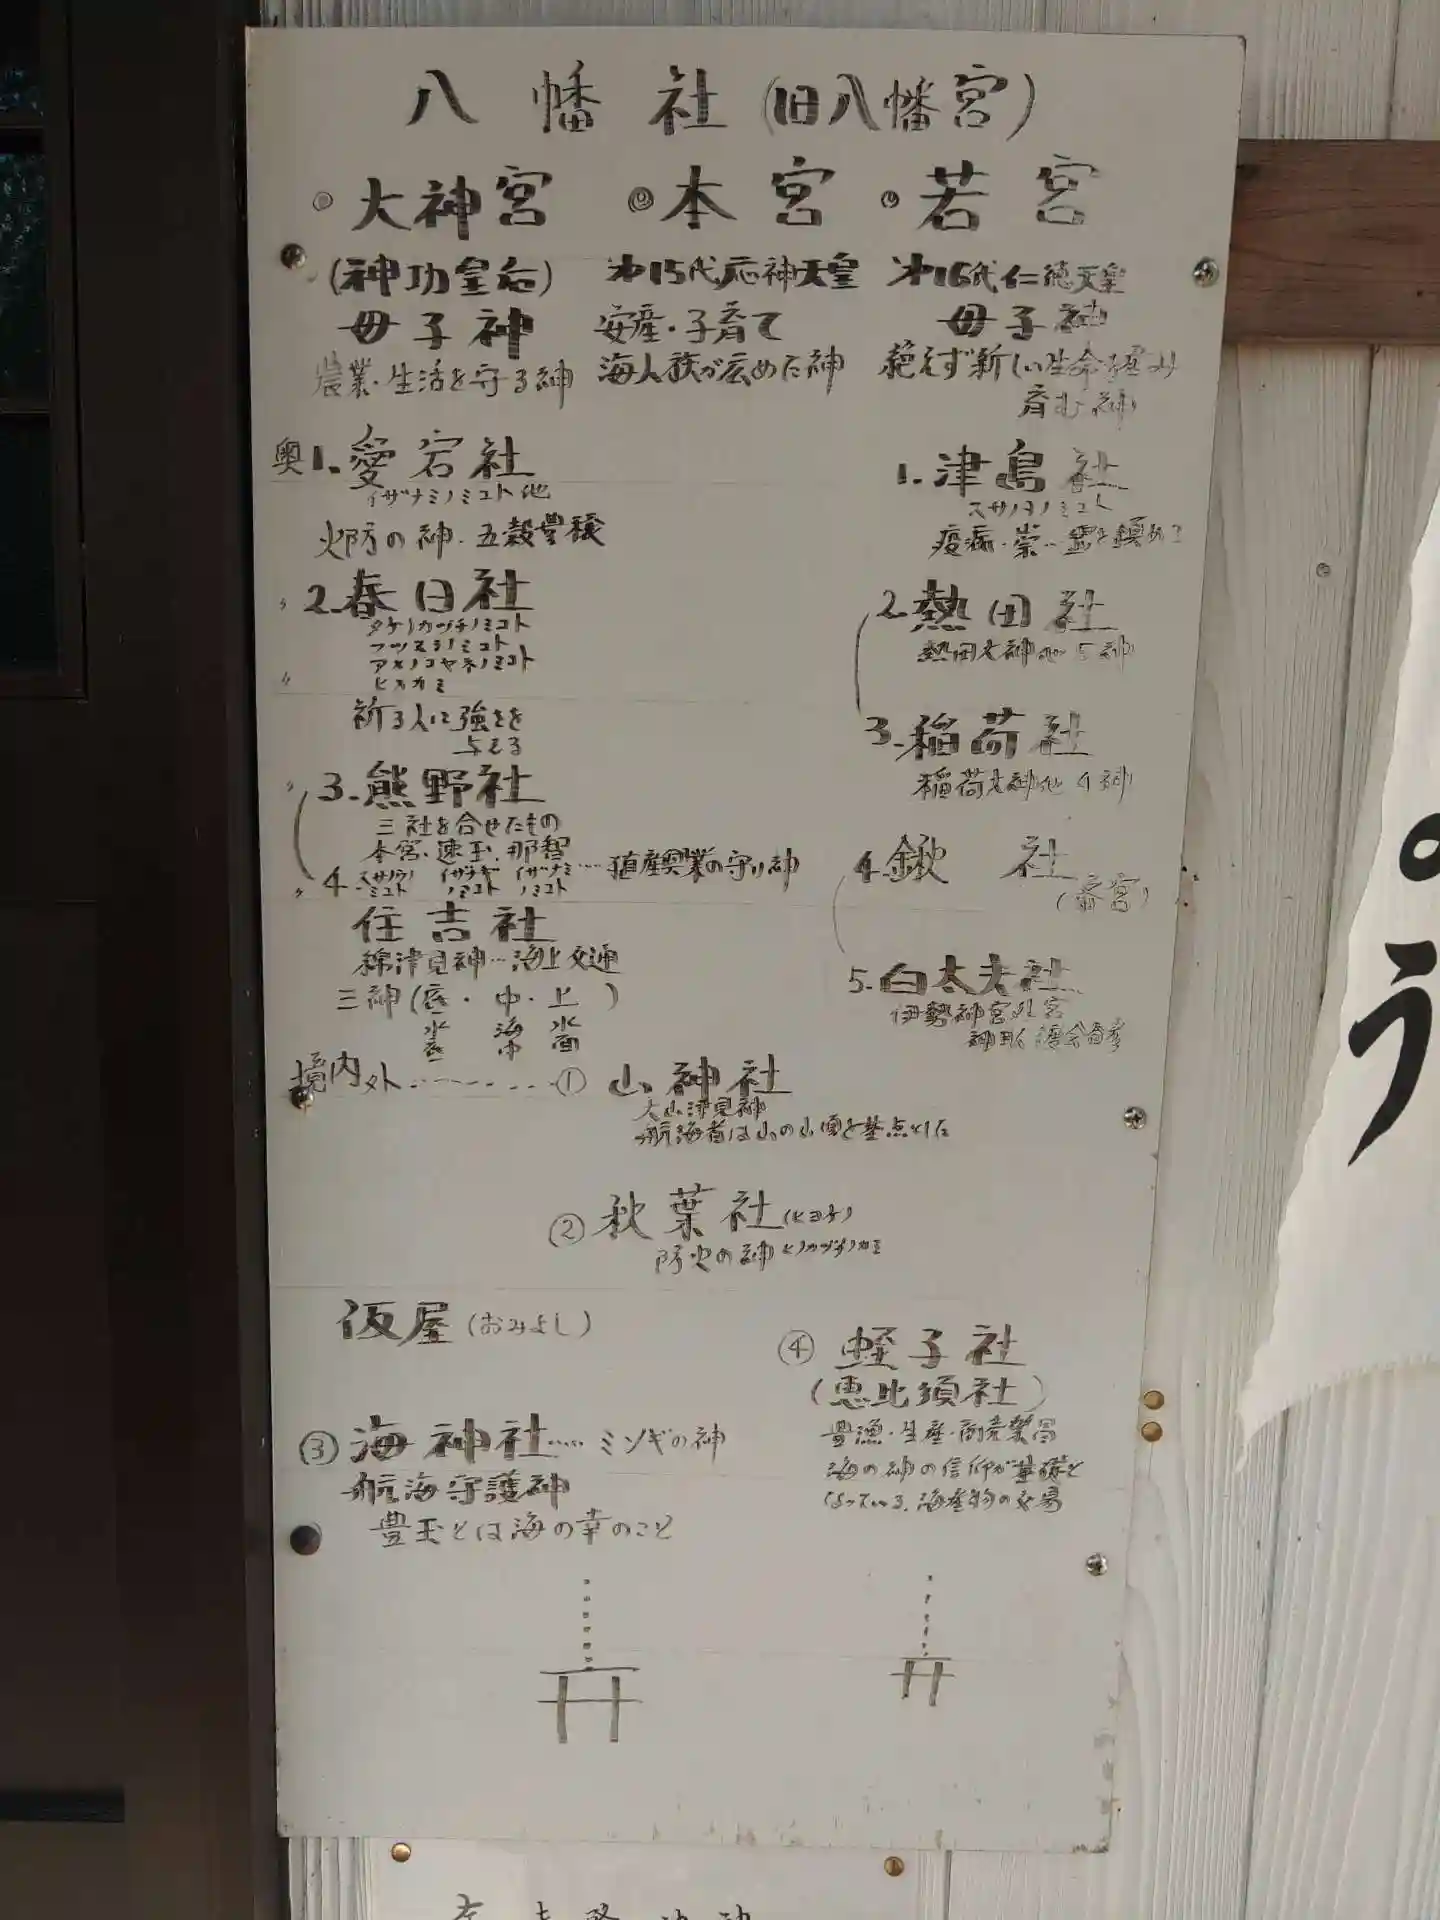 八幡社(旧八幡宮)
大神宮
(神功皇后)
母子神
農業・生活を守る神
本宮
才15代応神天皇
安産・子育て
海人族が広めた神
若宮
才16代仁徳天皇
母子神
絶えず新しい生命を産み
育む神
奥1.愛宕社
イザナミノミコト他
火防の神・五穀豊穣
2.春日社
タケノカツチノミコト
フツヌシノミコト
アメノコヤネノミコト
ヒメカミ
祈る人に強さを
与える
3.熊野社
三社を合せたもの
本宮・速玉・那智
スサノウノミコト イザナギノミコト イザナミノミコト……殖産興業の守り神
4.
住吉社
綿津見神…海上交通
三神(底・中・上)
水底 海中 水面
1.津島社
スサノヲノミコト
疫病・祟…霊を鎮める
2.熱田社
熱田大神他5神
3.稲荷社
稲荷大神他4神
4.鍬社
5.白太夫社
伊勢神宮外宮
神官
境内外---------① 山神社
大山津見神
航海者は山の山頂を基点とした
② 秋葉社(ヒヨケ)
防火の神 ヒノカグツチノカミ
仮屋(おみよし)
③ 海神社……ミソギの神
航海守護神
豊玉とは海の幸のこと
④ 蛭子社
(恵比須社)
豊漁・生産・商売繁昌
海の神の信仰が基礎と
なっている。海産物の交易
の
う